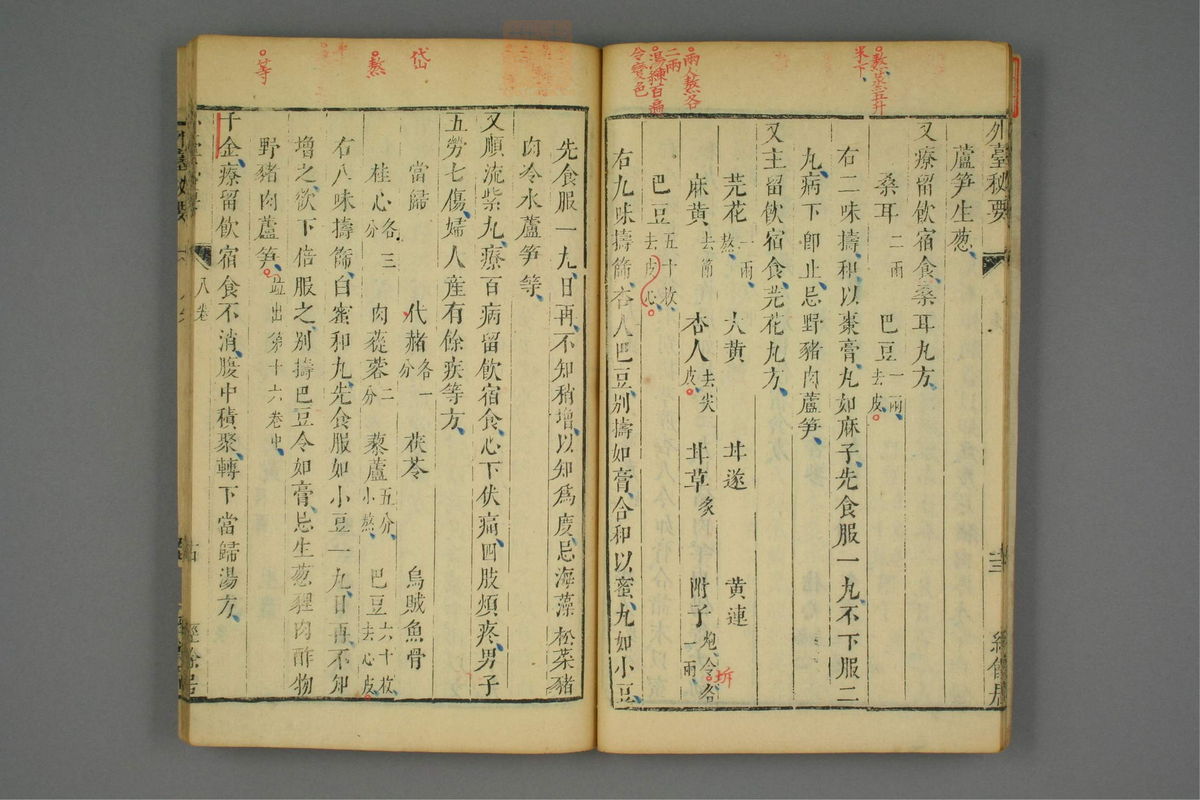 外臺秘要
蘆笋生葱
又療留飲宿食桑耳丸方
桑耳二兩 巴豆一兩去皮
右二味擣和以棗膏丸如麻子先食服一丸不下服二
丸病下即止忌野豬肉蘆笋
又主留飲宿食芫花丸方
芫花一兩熬 大黄 甘遂 黄連
麻黄去節 杏人去尖皮 甘草炙 附子炮令各一兩
巴豆五十枚去皮心
右九味擣篩杏人巴豆别擣如膏合和以蜜丸如小豆
先食服一丸日再不知稍增以知爲度忌海藻菘菜豬
肉冷水蘆笋等
又順流紫丸療百病留飲宿食心下伏痛四肢煩疼男子
五勞七傷婦人産有餘疾等方
當歸 代赭各一分 茯苓 烏賊魚骨
桂心各三分 肉蓯蓉二分 藜蘆五分小熬 巴豆六十枚去心皮
右八味擣篩白蜜和丸先食服如小豆一丸日再不知
增之欲下倍服之别擣巴豆令如膏忌生葱貍肉酢物
野豬肉蘆笋並出第十六卷中
千金療留飲宿食不消腹中積聚轉下當歸湯方
八卷
熬
兩人熬各二兩
令變色
坼
岱
熬
等